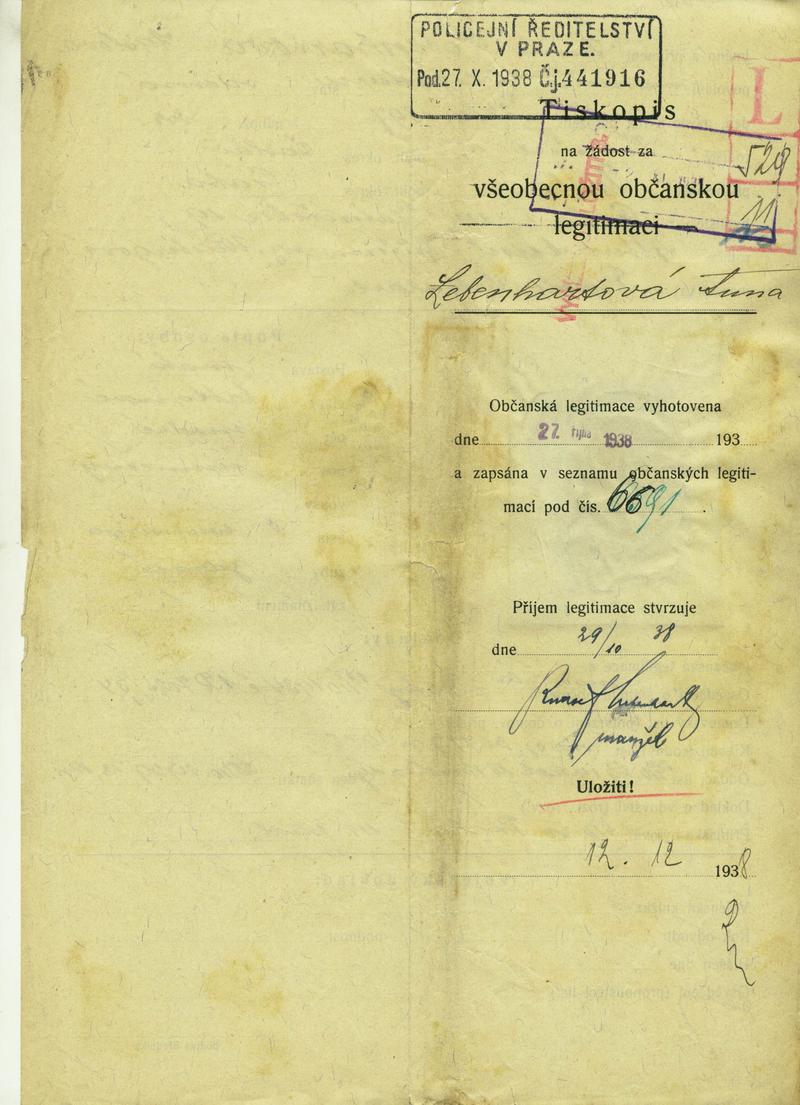 POLICEJNÍ ŘEDITELSTVÍ
V PRAZE.
Pod. 27. X. 1938 Č.j. 441916
Tiskopis
L
na žádost za
529
všeobecnou občanskou
11
legitimaci
Lebenhartová Anna
Občanská legitimace vyhotovena
dne 27. října 1938 193
a zapsána v seznamu občanských legiti-
mací pod čís. 6691.
Příjem legitimace stvrzuje
dne 29/10 38
Rudolf Lebenhart
manžel
Uložiti!
12. 12 1938